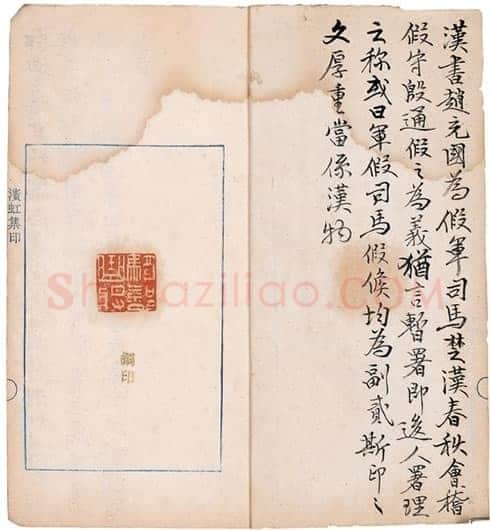 漢書趙充國為假軍司馬楚漢春秋會稽
假守殷通假之為義猶言暫署即後人署理
之称或曰軍假司馬假候均為副貳斯印之
文厚重當係漢物
銅印
濱虹集印
Shufaziliao.COM